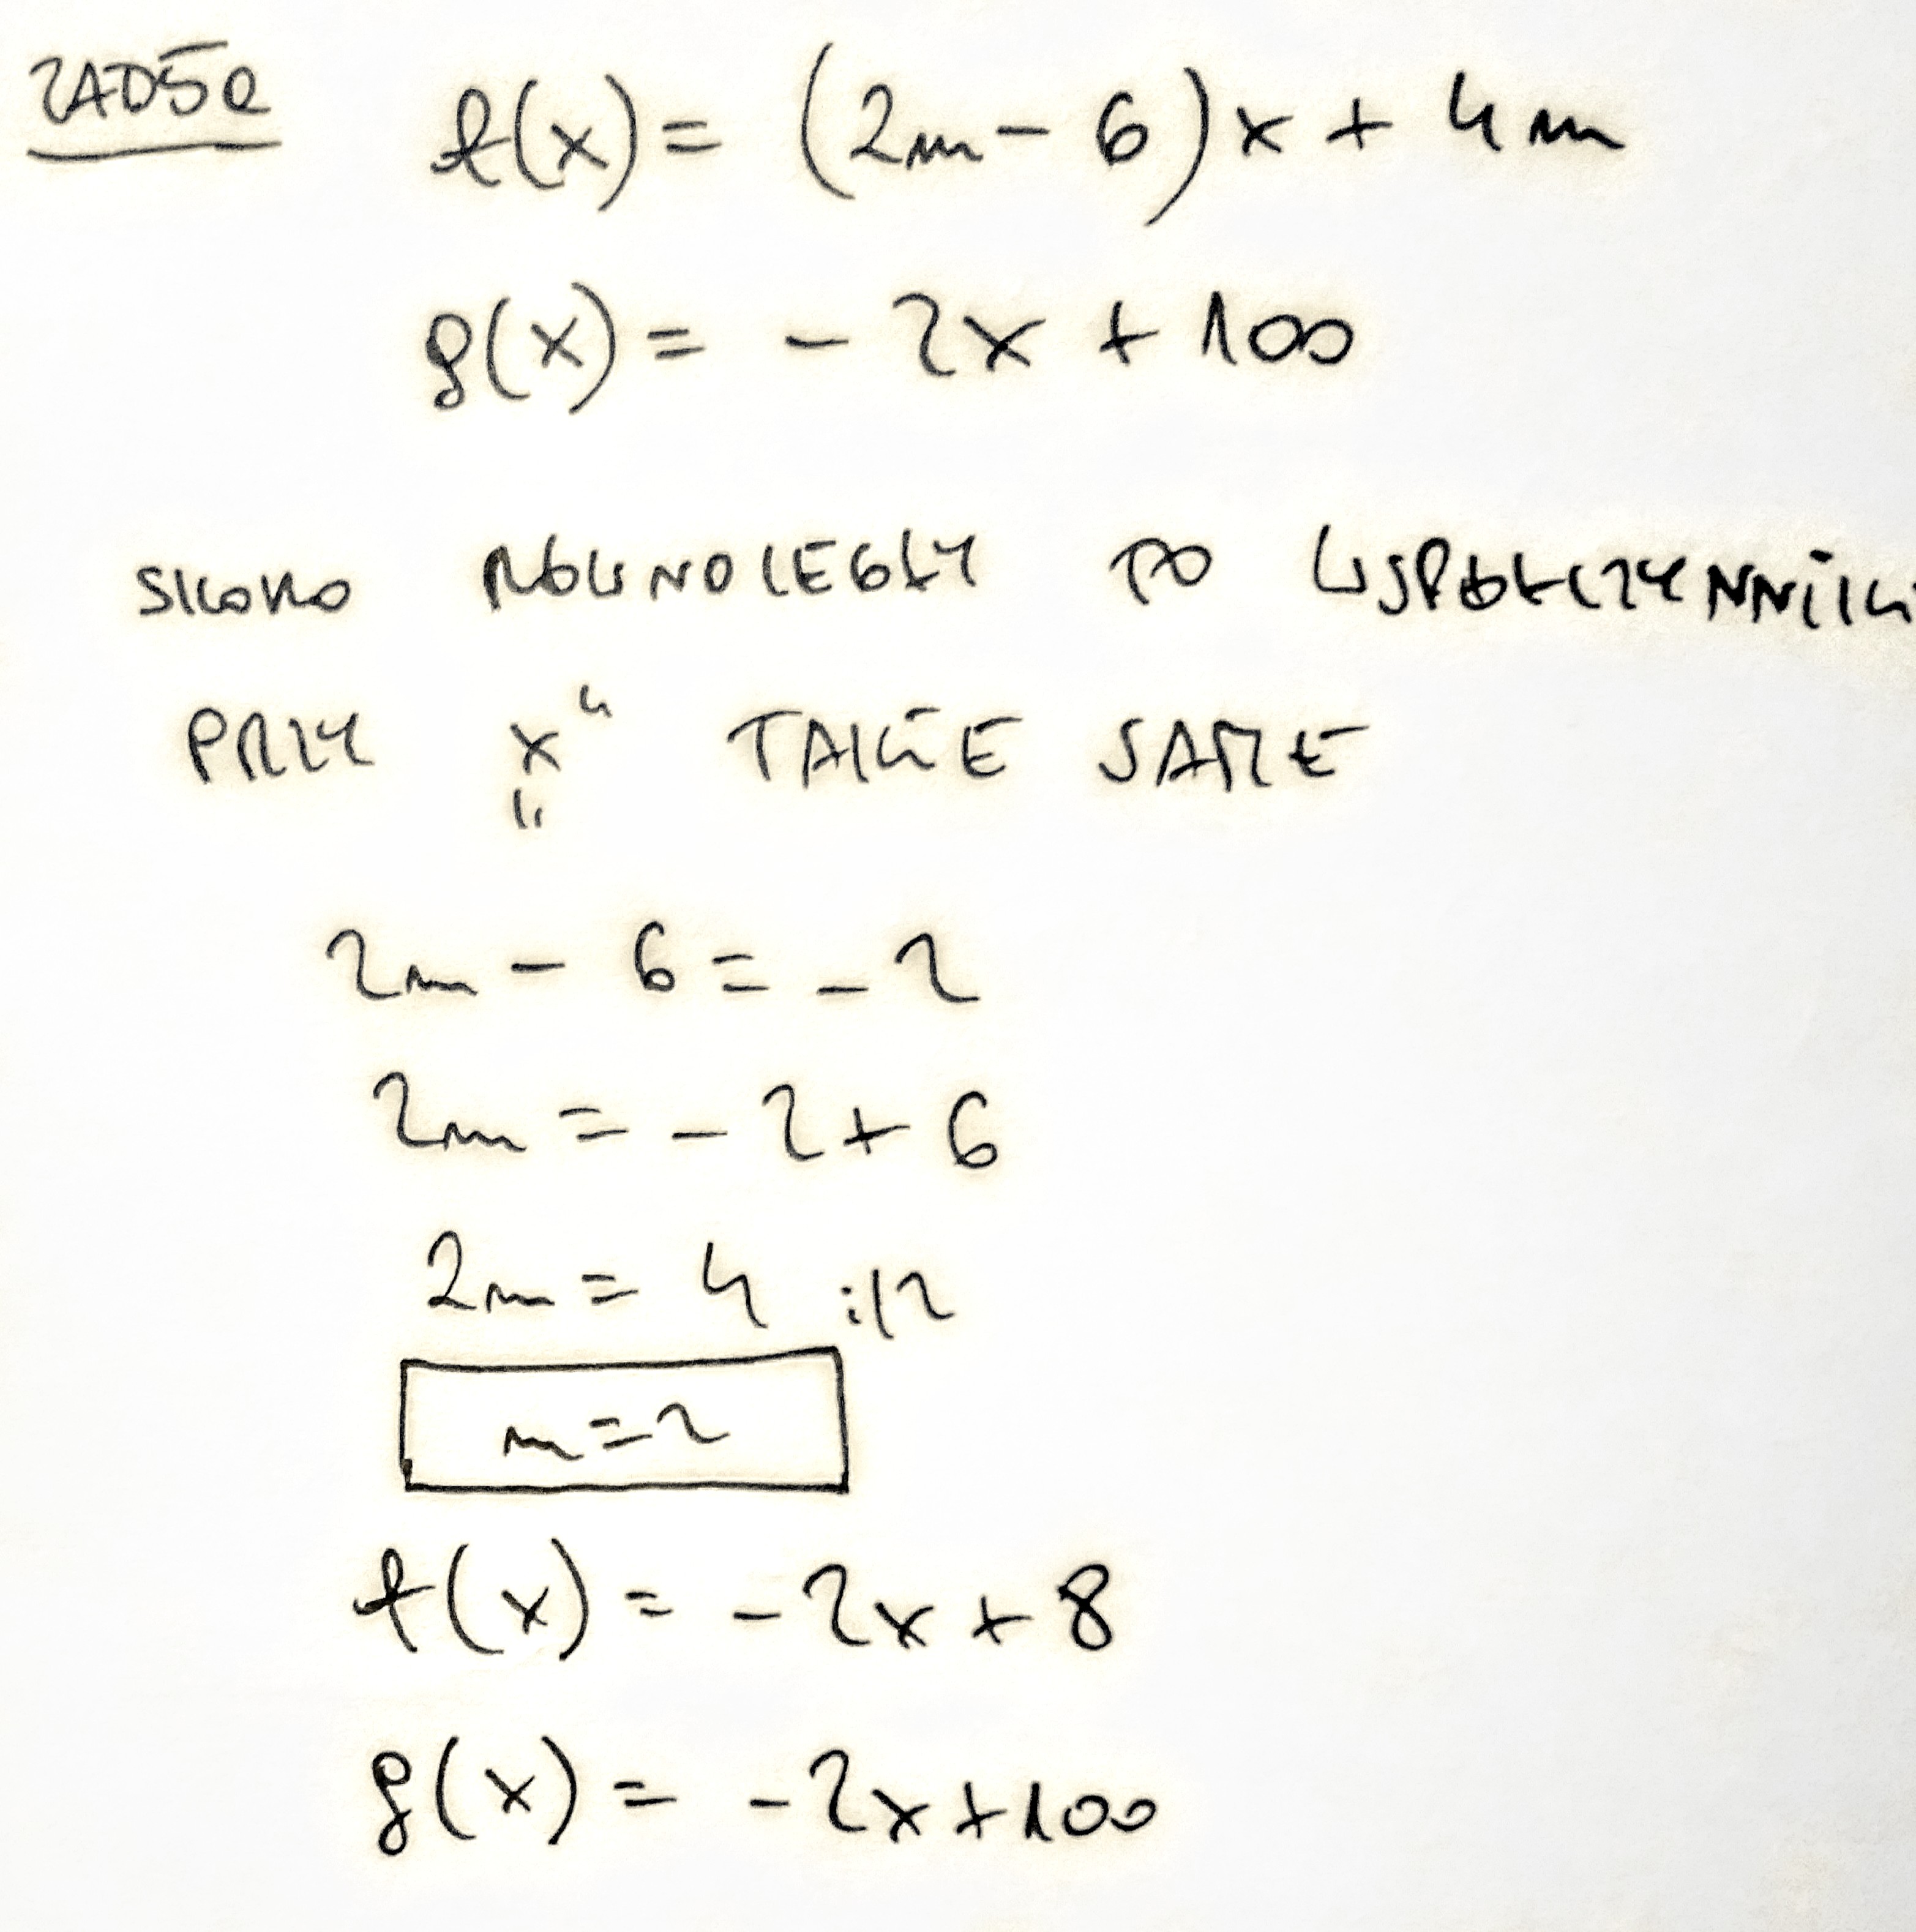 ZAD5a f(x) = (2m - 6)x + 4m
g(x) = - 2x + 100
SKORO RÓWNOLEGŁY TO WSPÓŁCZYNNIKI
PRZY „x“ TAKIE SAME
2m - 6 = - 2
2m = - 2 + 6
2m = 4 :|2
m = 2
f(x) = - 2x + 8
g(x) = - 2x + 100